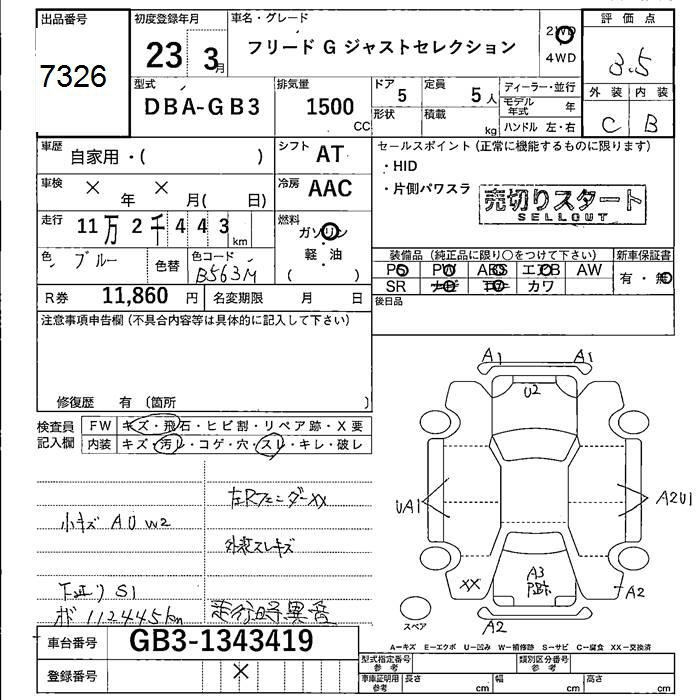 出品番号
7326
初度登録年月
23
3月
車名・グレード
フリード G ジャストセレクション
2WD
4WD
評価点
3.5
外装 内装
C B
型式
DBA-GB3
排気量
1500
CC
ドア
5
定員
5人
形状
積載
kg
ディーラー・並行
モデル年式 年
ハンドル 左・右
車歴
自家用・( )
シフト
AT
車検
× 年 × 月( 日)
冷房
AAC
走行
11万2千443
km
燃料
ガソリン
軽油
( )
色
ブルー
色替
色コード
B563M
R券 11,860 円
名変期限 月 日
セールスポイント (正常に機能するものに限ります)
・HID
・片側パワスラ
売切りスタート
SELLOUT
装備品 (純正品に限り〇をつけて下さい)
新車保証書
PS PW ABS エアB AW
有・無
SR ナビ カワ
後日品
注意事項申告欄 (不具合内容等は具体的に記入して下さい)
修復歴 有 (箇所
検査員記入欄
FW キズ・飛石・ヒビ割・リペア跡・X要
内装 キズ・汚れ・コゲ・穴・スレ・キレ・破レ
左Rフェンダーxx
小キズ A U W2
外装スレキズ
下廻り S1
112445km
走行時異音
A1 A1
U2
UA1
A2U1
A3
xx
A2
A2
スペア
A-キズ E-エクボ U-凹み W-補修跡 S-サビ C-腐食 XX-交換済
車台番号
GB3-1343419
登録番号
×
型式指定番号 参考
類別区分番号 参考
車庫証明用 参考
長さ cm
幅 cm
高さ cm